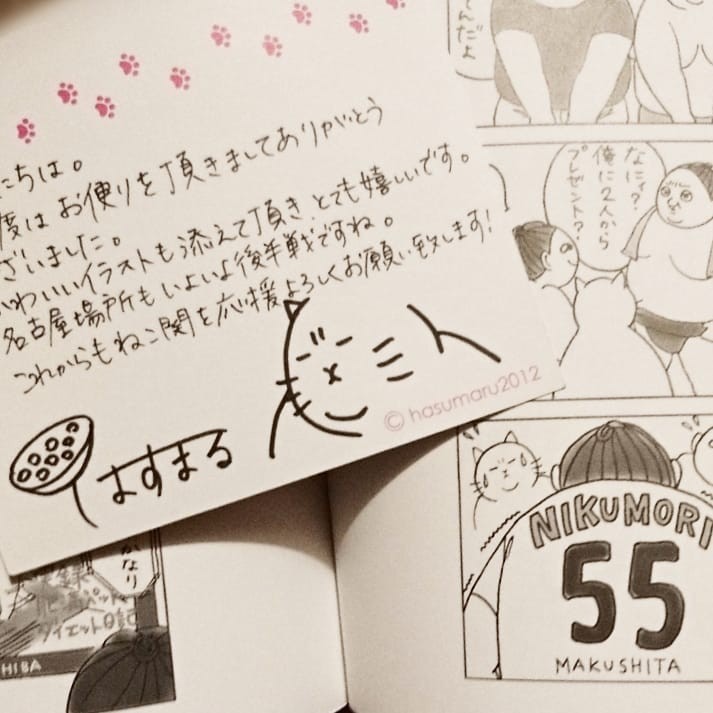 にちは。
度はお便りを頂きましてありがとう
ざいました。
かわいいイラストも添えて頂き、とても嬉しいです。
名古屋場所もいよいよ後半戦ですね。
これからもねこ関を応援よろしくお願い致します!
はすまる
© hasumaru2012
てんだよ
なにィ?
俺に2人から
プレゼント?
NIKUMORI
55
MAKUSHITA
かなり
ダイエット日記
HIBA